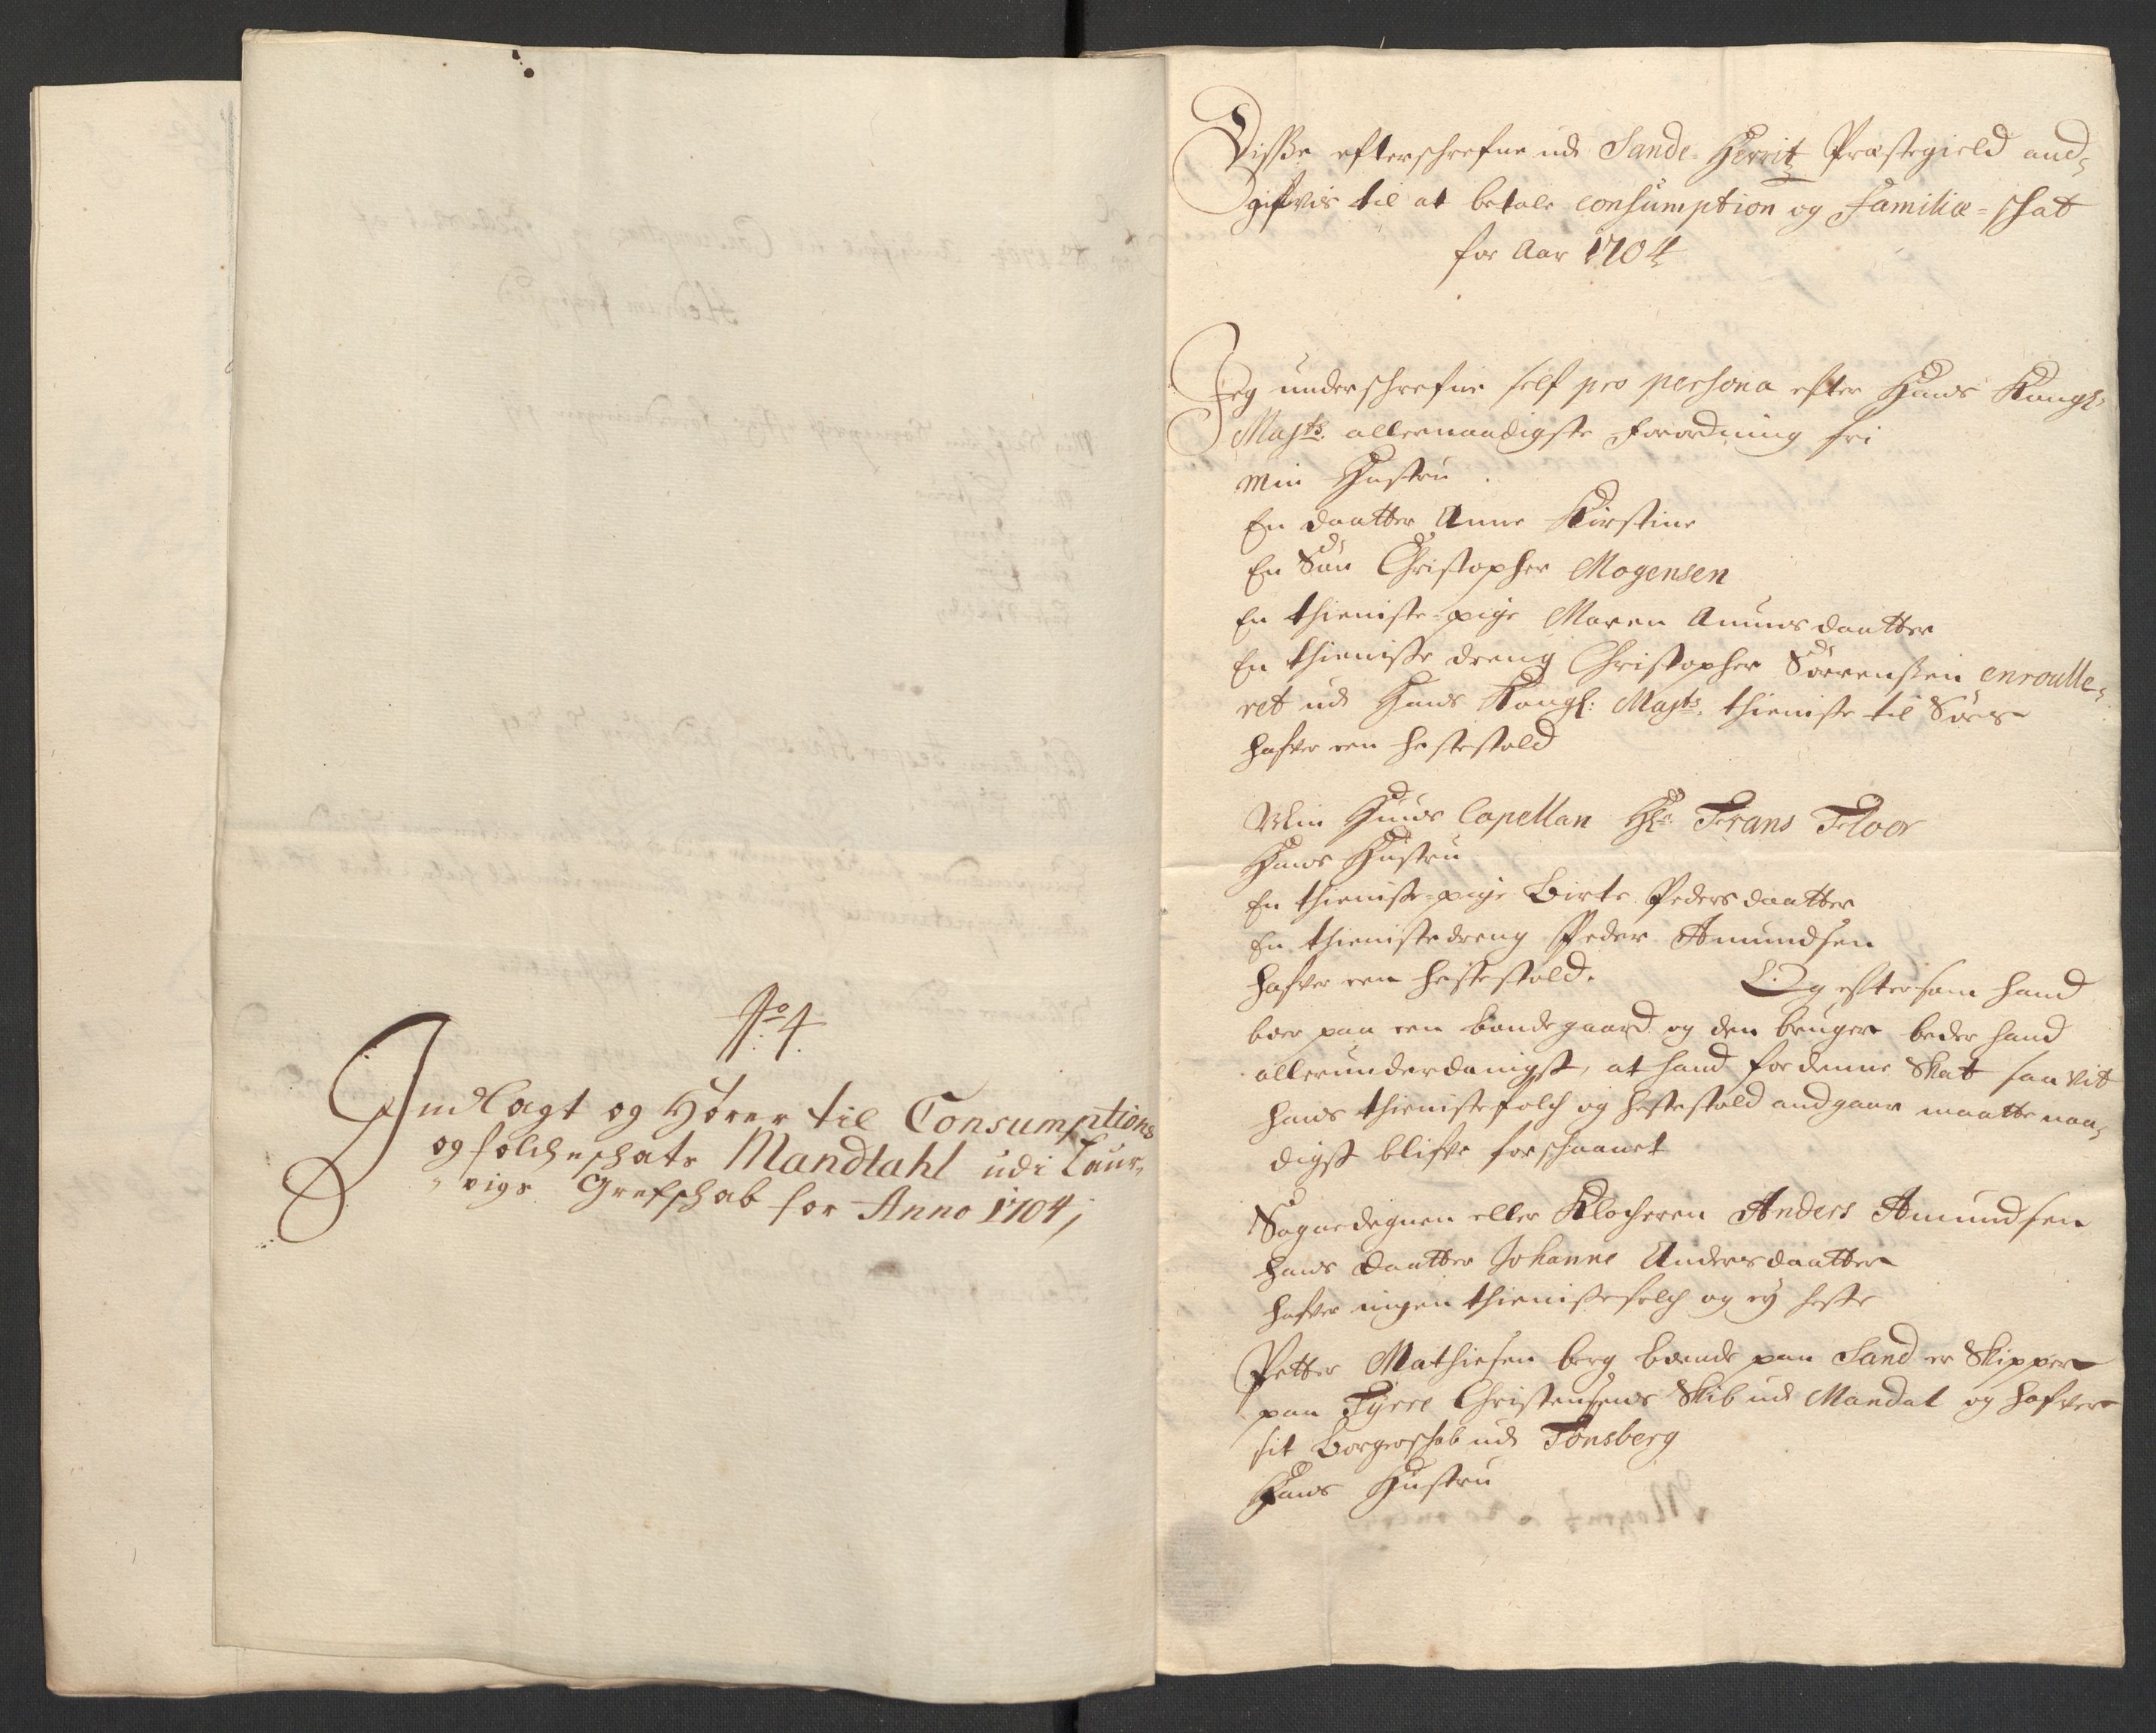 No 4.
Indlagt og Hører til Consumptions
og folcheschats Mandtahl udi Laur-
vigs Grefschab for Anno 1704;
Disse efterschrefne udi Sande Herrit Præstegield and-
gifvis til at betale consumption og Familiæ-schat
for Aar 1704
Jeg underschrefne self pro persona efter Hans Kongl.
Mayts. allernaadigste Forordning fri
Min Hustru
En daatter Anne Kirstine
En Søn Christopher Mogensen
En thieniste-pige Maren Amunsdaatter
En thieniste dreng Christopher Sørrenssen enroulle-
ret udi Hans Kongl: Mayts. thieniste til Søes
hafver een hestestald
Min Huus Capellan Hr. Frans Floor
Hans Hustru
En thieniste-pige Birte Pedersdaatter
En thienistedreng Peder Amundsen
hafver een hestestald. Og eftersom hand
boer paa een bondegaard og den bruger beder hand
allerunderdanigst, at hand for denne Skat saa vit
hans thienistefolch og hestestald andgaar maatte naa-
digst blifve forschaanet
Sognedegnen eller Klocheren Anders Amundsen
hans daatter Johanne Andersdaatter
hafver ingen thienistefolch og ey heste
Petter Mathiesen berg boende paa Sand er Skipper
paa Tyrre Christensens Skib udi Mandal og hafver
sit Borgerschab udi Tønsberg
Hans Hustru